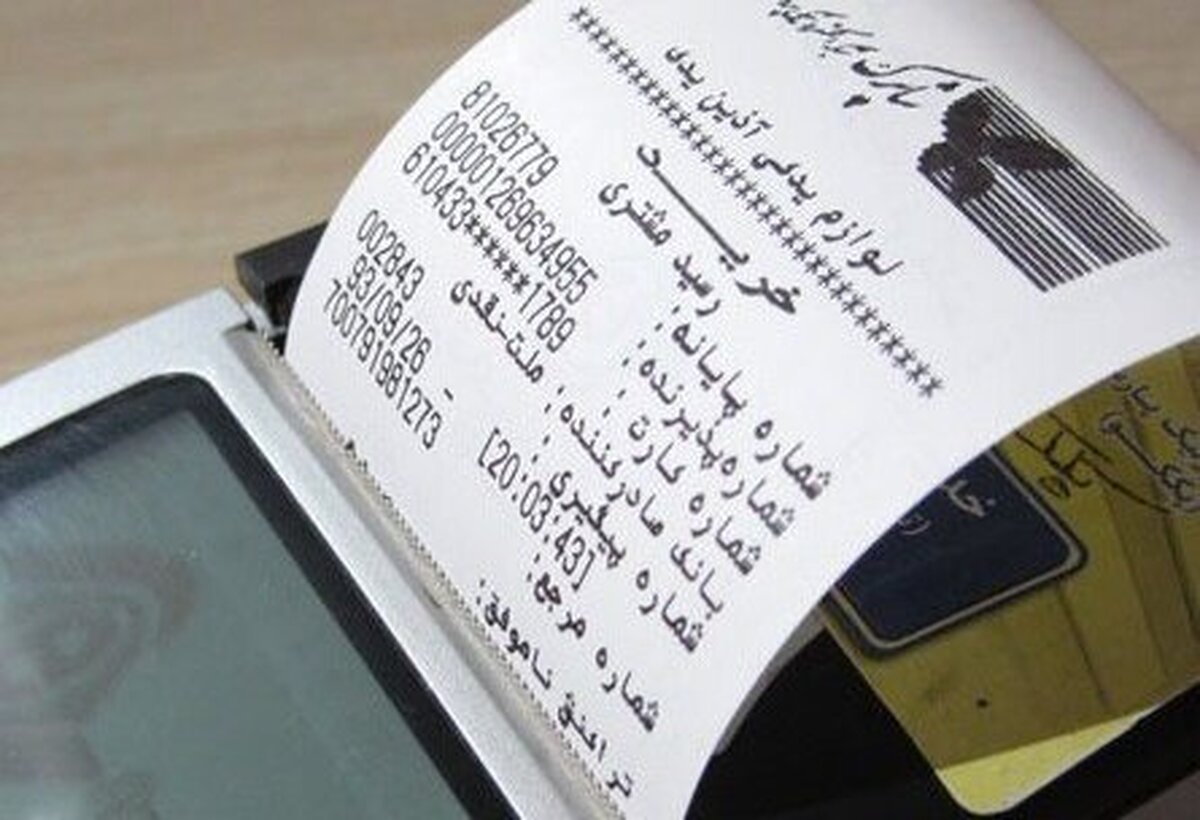 شاپرک
لوازم یدکی آذین یدک
********************************
خریــــــد
رسید مشتری
شماره پایانه: 81026779
شماره پذیرنده: 000001269634955
شماره کارت: 610433******1789
بانک صادرکننده: ملت-نقدی
شماره پیگیری: 002843
93/09/26 - [20:03:43]
شماره مرجع: 700791981273
تراکنش ناموفق: